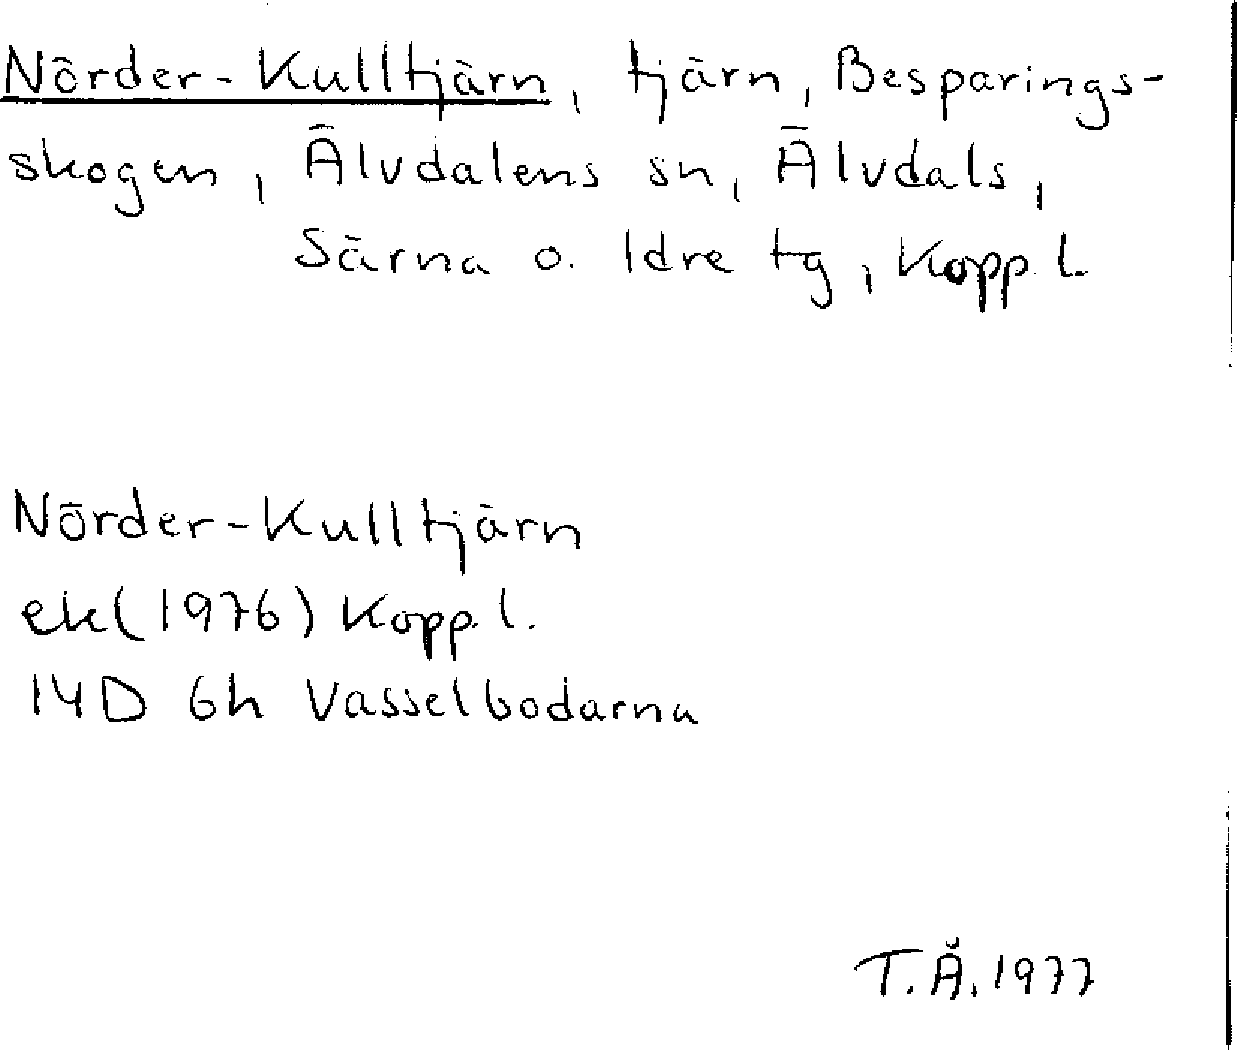 Nörder-Kulltjärn, tjärn, Besparings-
skogen, Älvdalens sn, Älvdals,
Särna o. Idre tg, Kopp. l.
Nörder-Kulltjärn
ek(1976) Kopp. l.
14D 6h Vasselbodarna
T.Å. 1977